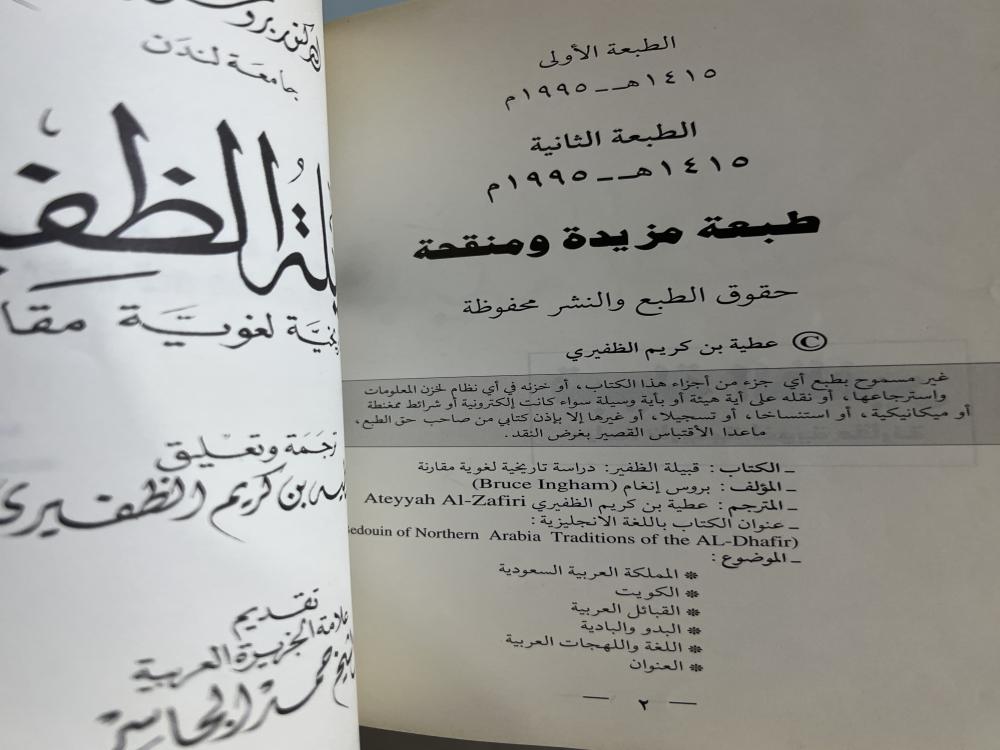 الطبعة الأولى
١٤١٥هــ ــ ١٩٩٥م
الطبعة الثانية
١٤١٥هــ ــ ١٩٩٥م
طبعة مزيدة ومنقحة
حقوق الطبع والنشر محفوظة
© عطية بن كريم الظفيري
غير مسموح بطبع أي جزء من أجزاء هذا الكتاب، أو خزنه في أي نظام لخزن المعلومات
واسترجاعها، أو نقله على أية هيئة أو بأية وسيلة سواء كانت إلكترونية أو شرائط ممغنطة
أو ميكانيكية، أو استنساخا، أو تسجيلا، أو غيرها إلا بإذن كتابي من صاحب حق الطبع،
ماعدا الأقتباس القصير بغرض النقد.
ــ الكتاب : قبيلة الظفير: دراسة تاريخية لغوية مقارنة
ــ المؤلف : بروس إنغام (Bruce Ingham)
ــ المترجم : عطية بن كريم الظفيري Ateyyah Al-Zafiri
ــ عنوان الكتاب باللغة الانجليزية :
edouin of Northern Arabia Traditions of the AL-Dhafir)
ــ الموضوع :
❊ المملكة العربية السعودية
❊ الكويت
❊ القبائل العربية
❊ البدو والبادية
❊ اللغة واللهجات العربية
❊ العنوان
— ٢ —
جامعة لندن
لغوية
ترجمة وتعليق
بن كريم الظفيري
تقديم
علامة الجزيرة العربية
حمد الجاسر